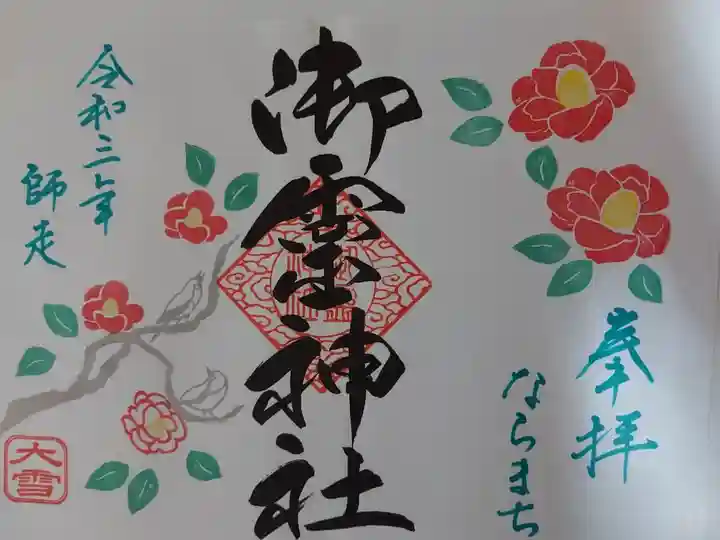 奉拝
ならまち
御霊神社
令和三年
師走
大雪